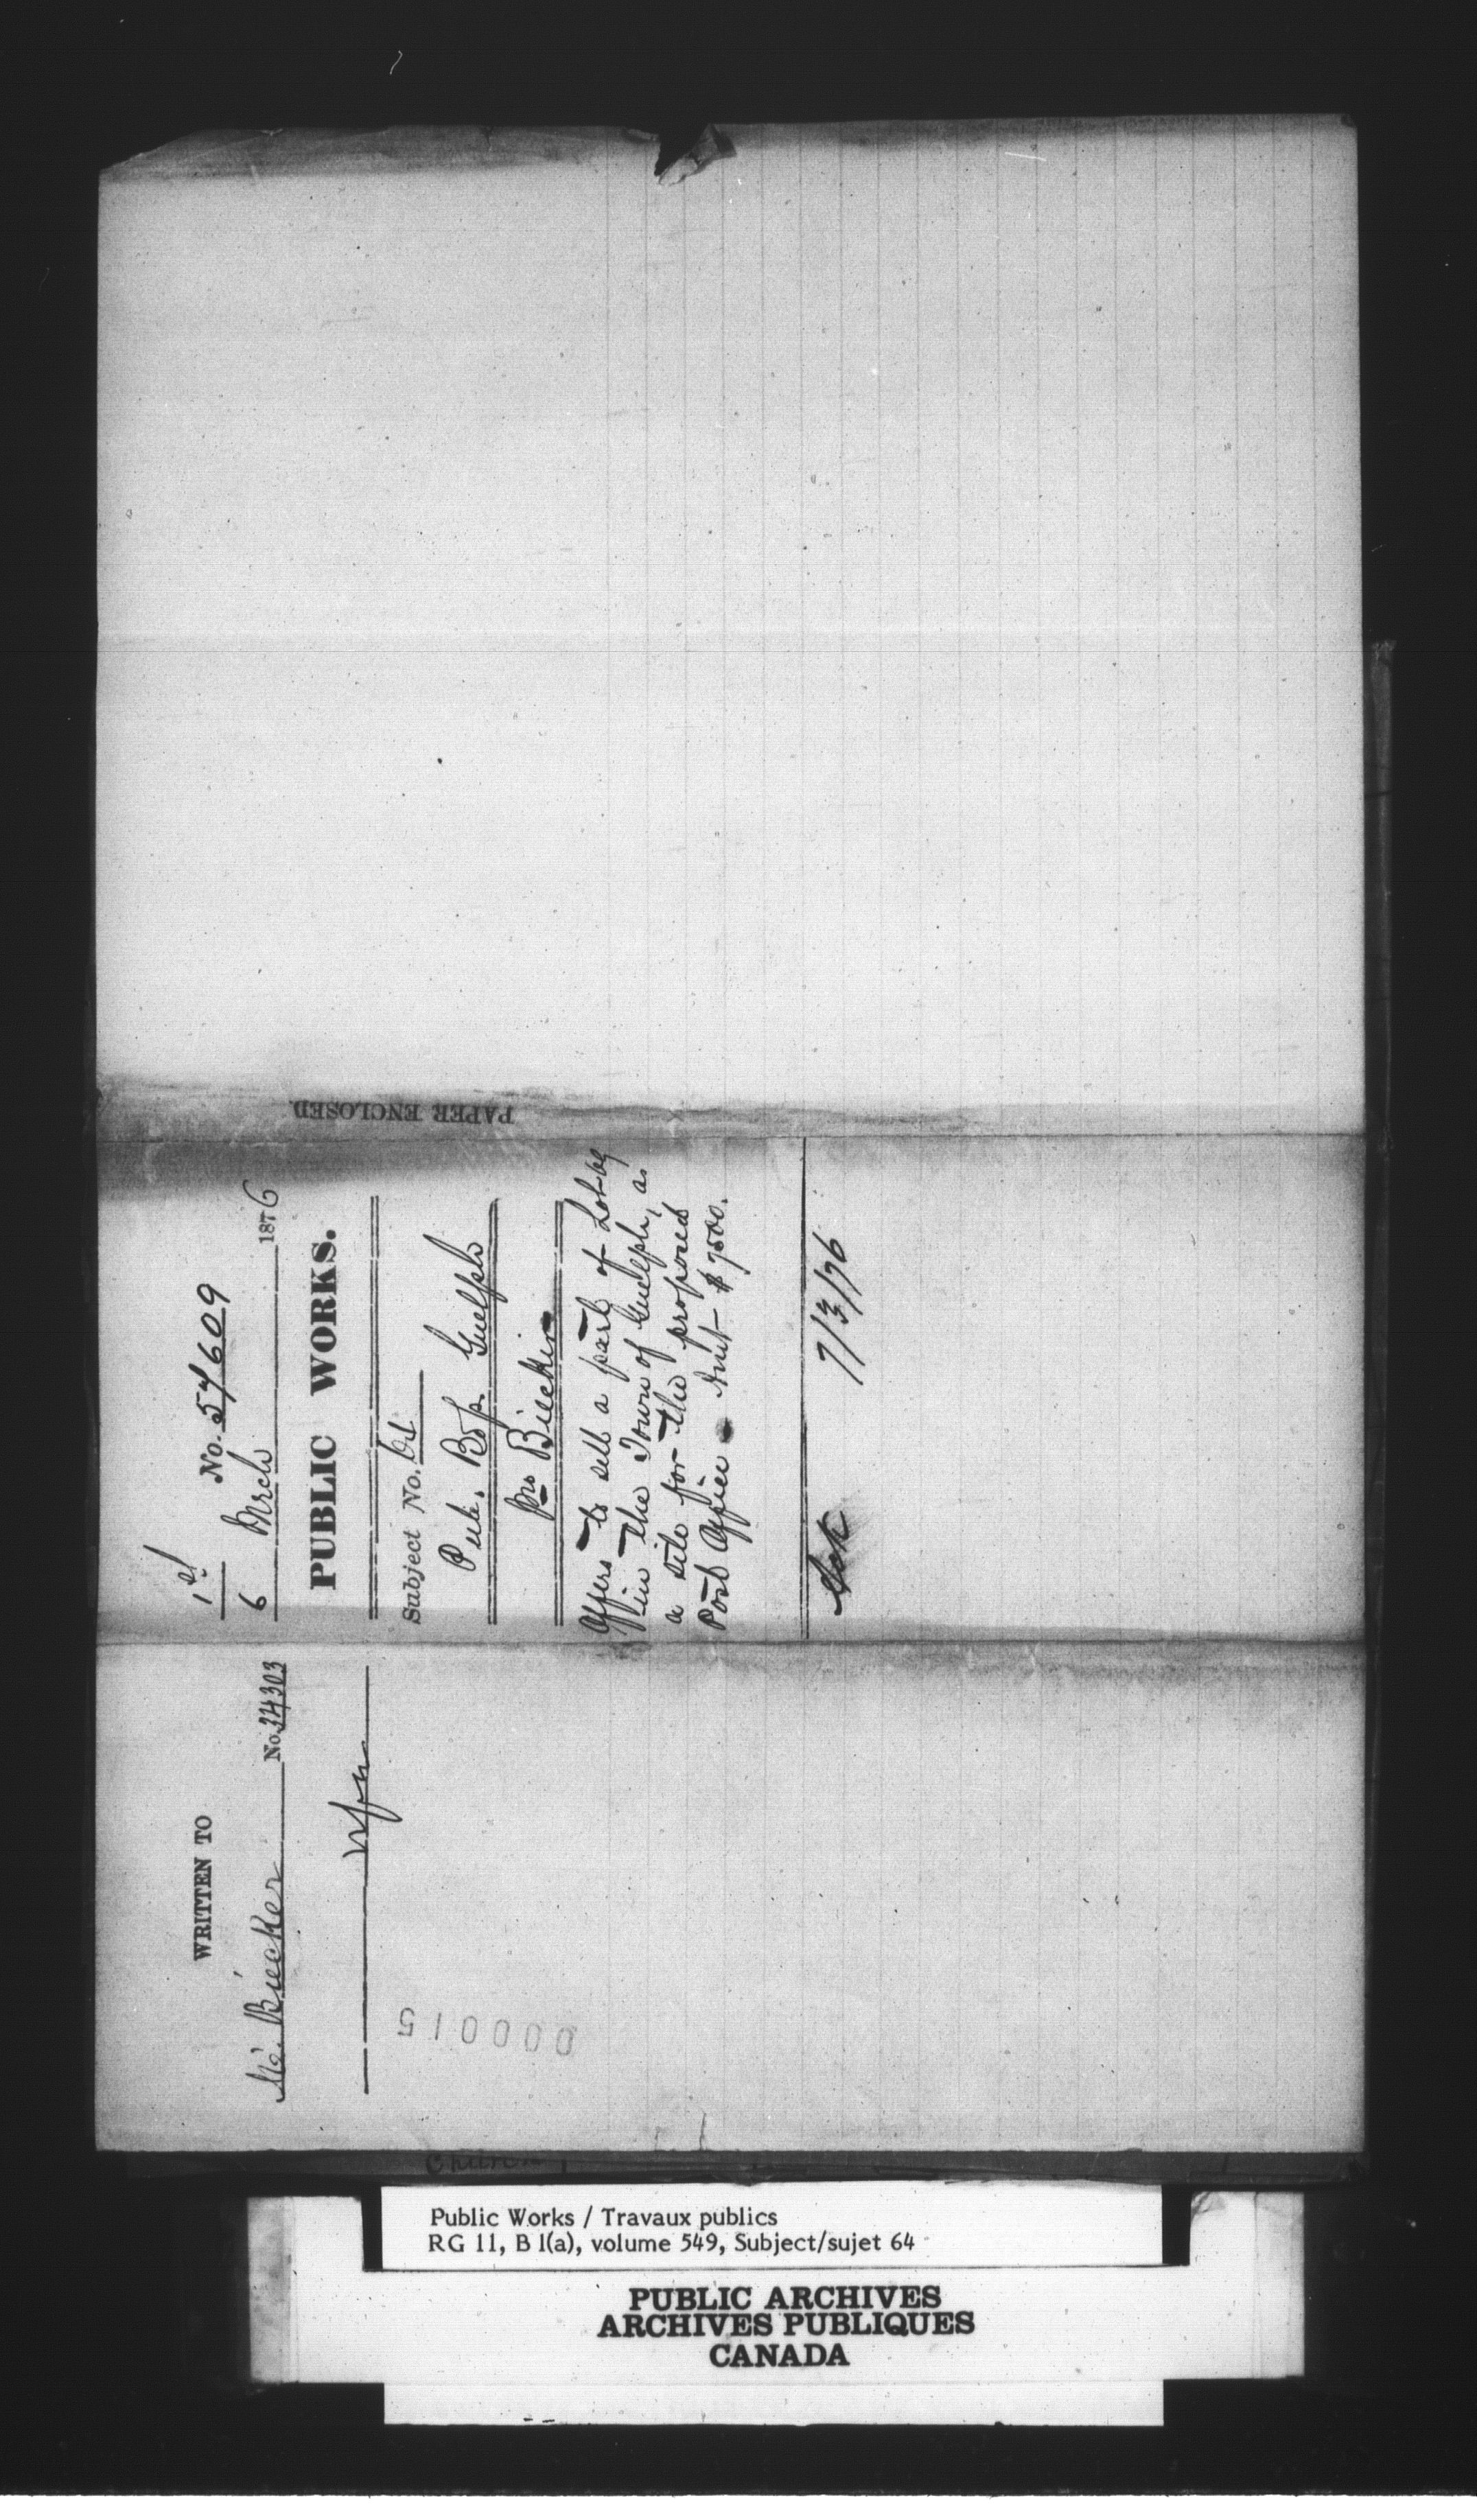 PAPER ENCLOSED
1st
No. 57609
6 Mrch 1876
PUBLIC WORKS.
Subject No. 64
Pub. Bdgs. Guelph
Mr Biecker
Offers to sell a part of Lot 69
in the Town of Guelph, as
a site for the proposed
Post Office $7500.
Ack 7/3/76
WRITTEN TO
Mr. Biecker No. 34303
000015
Public Works / Travaux publics
RG 11, B 1(a), volume 549, Subject/sujet 64
PUBLIC ARCHIVES
ARCHIVES PUBLIQUES
CANADA